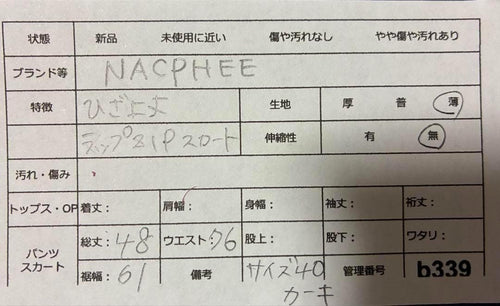 状態 新品 未使用に近い 傷や汚れなし やや傷や汚れあり
ブランド等 NACPHEE
特徴 ひざよよ 生地 厚 普 薄
ラップZIPスカート 伸縮性 有 無
汚れ・傷み
トップス・OP 着丈: 肩幅: 身幅: 袖丈: 裄丈:
パンツ スカート 総丈:48 ウエスト:76 股上: 股下: ワタリ:
裾幅:61 備考 サイズ40 管理番号 b339
カーキ